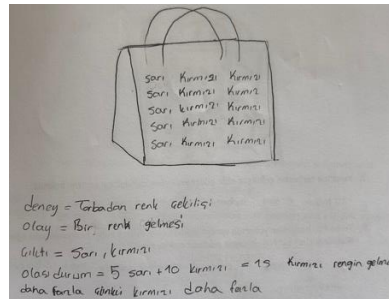 Sarı Kırmızı Kırmızı
Sarı Kırmızı Kırmız
Sarı kırmızı Kırmızı
Sarı Kırmızı Kırmızı
Sarı Kırmızı Kırmızı
deney = Torbadan renk çekilişi
olay = Bir renk gelmesi
Çıktı = Sarı, kırmızı
olası durum = 5 sarı + 10 kırmızı = 15 kırmızı rengin gelme
daha fazla çünkü kırmızı daha fazla